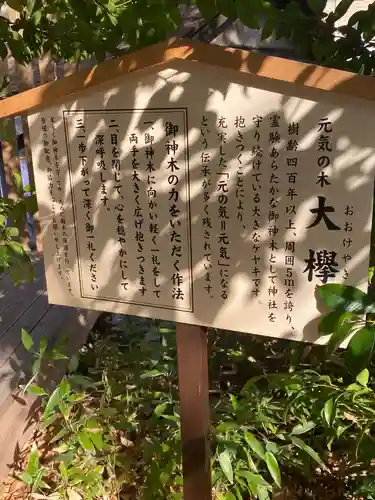 元気の木 大欅
おおけやき
樹齢四百年以上、周囲5mを誇り、
霊験あらたかな御神木として神社を
守り続けている大きなケヤキです。
抱きつくことにより、
充実した「元の気=元気」になる
という伝承が多く残されています。
御神木の力をいただく作法
一、御神木に向かい軽く一礼をし
両手を大きく広げ抱きつきます
二、目を閉じて、心を穏やかにして
深呼吸します。
三、一歩下がって深く御一礼ください